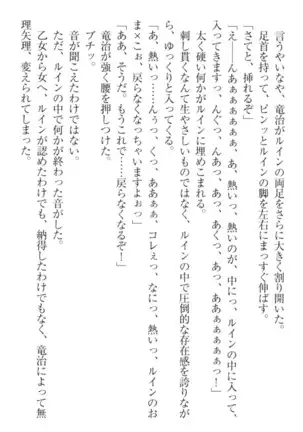 言うやいなや、竜治がルインの両足をさらに大きく割り開いた。
足首を持って、ピンッとルインの脚を左右にまっすぐ伸ばす。
「さてと、挿れるぞ」
「え――んあぁぁぁぁぁ、あ、熱いっ、熱いのが、中にっ、ルインの中に入って、
入ってきますっ、んぐっ、んあっ、あっ、あくっ、あっ、ああぁぁぁぁぁっ！」
太く硬い何かがルインに埋めこまれる。
刺し貫くなんて生やさしいものではなく、ルインの中で圧倒的な存在感を誇りなが
ら、ゆっくりと入ってくる。
「あ、熱いっ……んぅっ、くっ、ああぁぁ、コレぇっ、なにっ、熱いっ、ルインのお
ま×こぉ、戻らなくなっちゃいますよぉっ」
「ああ、そうだ。もうこれで……戻らなくなるぞ！」
竜治が強く腰を押しつけた。
ブチッ。
音が聞こえたわけではない。
ただ、ルインの中で何かが終わった音がした。
乙女から女へ、ルインが認めたわけでも、納得したわけでもなく、竜治によって無
理矢理、変えられてしまった。